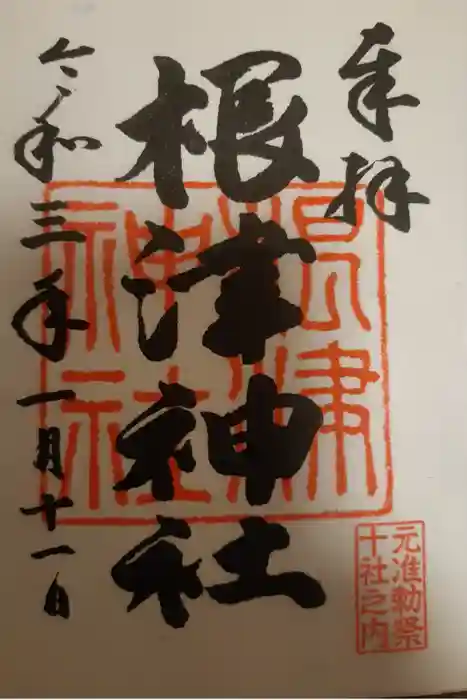 奉拝
根津神社
令和三年一月十一日
根津神社
元准勅祭
十社之内